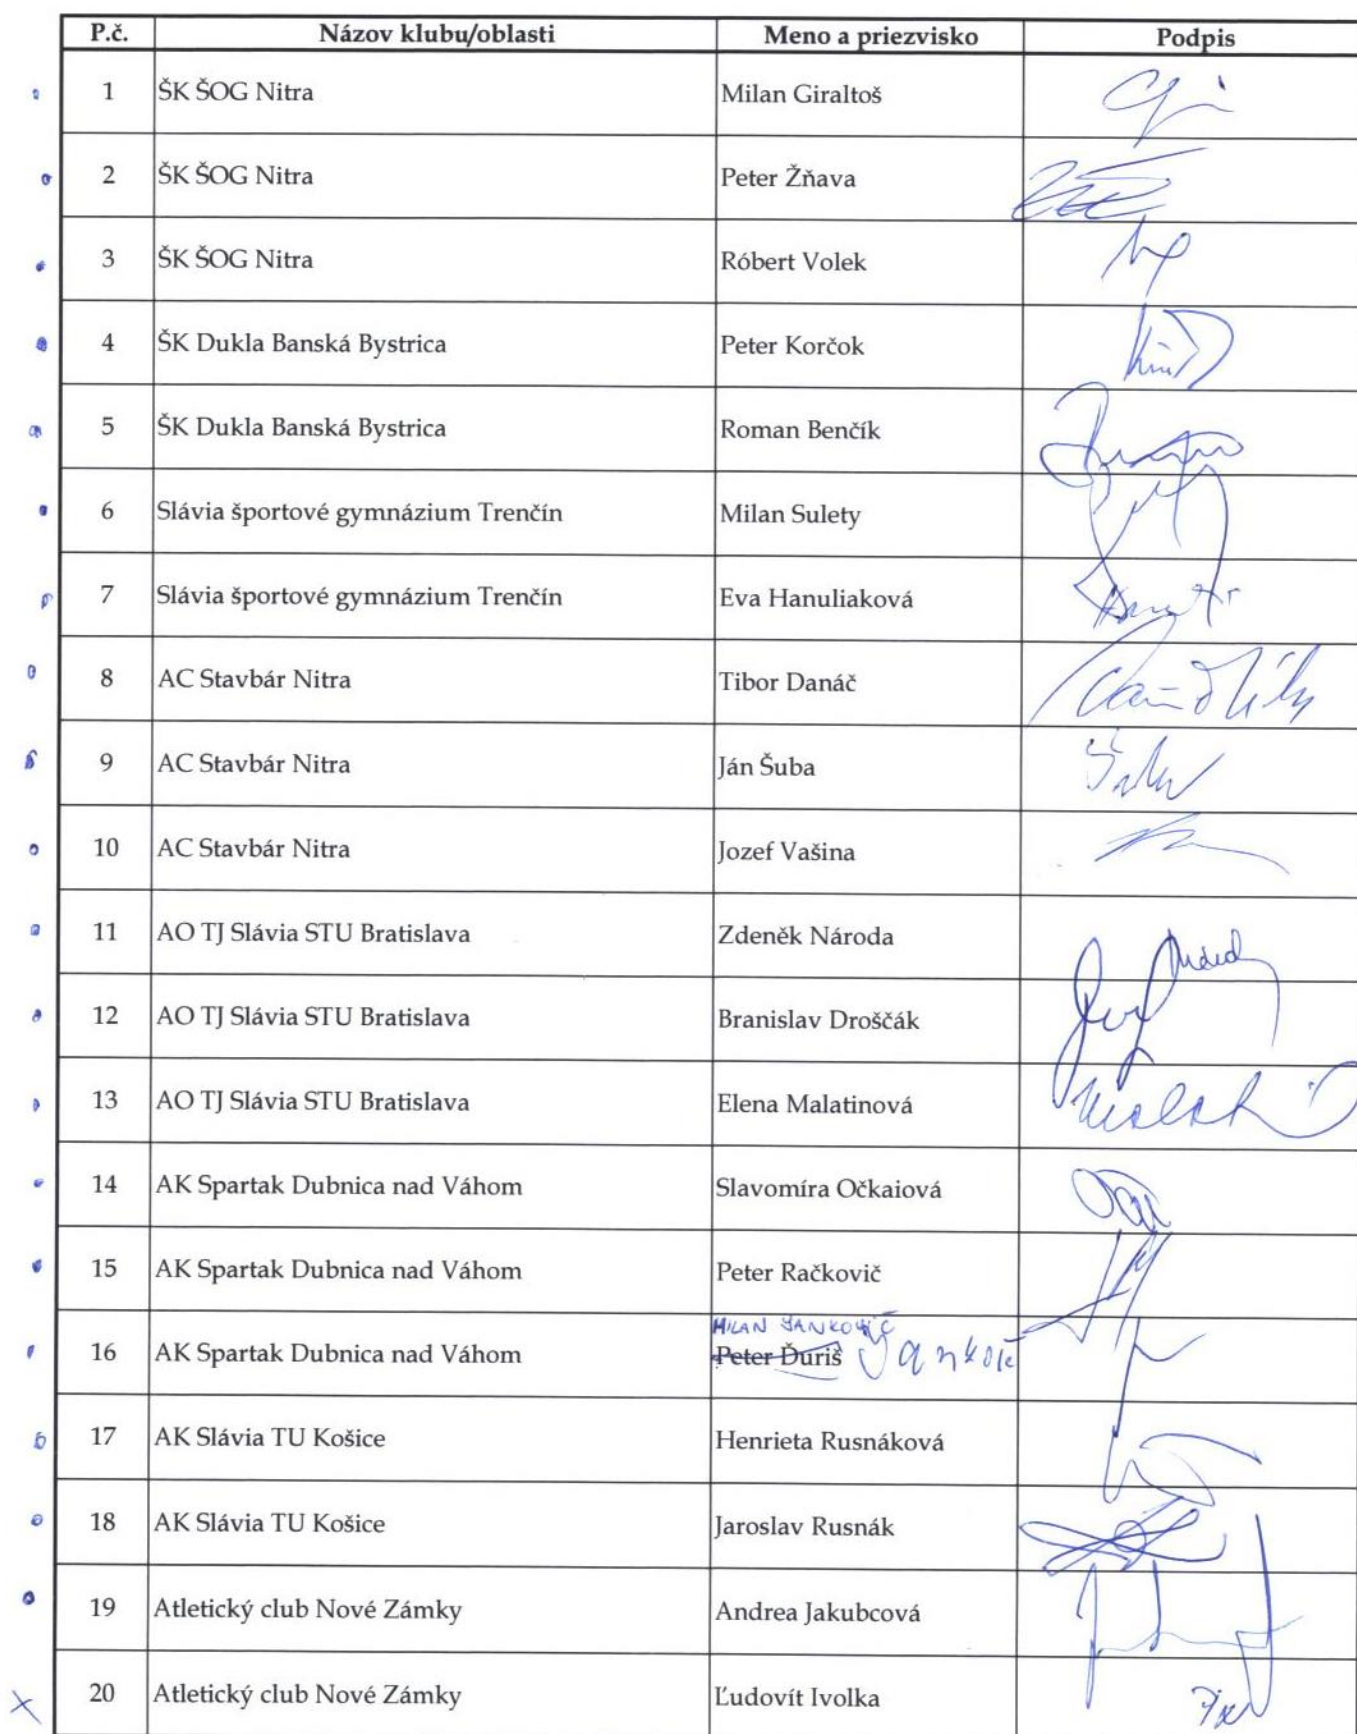 P.č. Názov klubu/oblasti Meno a priezvisko Podpis
1 ŠK ŠOG Nitra Milan Giraltoš
2 ŠK ŠOG Nitra Peter Žňava
3 ŠK ŠOG Nitra Róbert Volek
4 ŠK Dukla Banská Bystrica Peter Korčok
5 ŠK Dukla Banská Bystrica Roman Benčík
6 Slávia športové gymnázium Trenčín Milan Sulety
7 Slávia športové gymnázium Trenčín Eva Hanuliaková
8 AC Stavbár Nitra Tibor Danáč
9 AC Stavbár Nitra Ján Šuba
10 AC Stavbár Nitra Jozef Vašina
11 AO TJ Slávia STU Bratislava Zdeněk Národa
12 AO TJ Slávia STU Bratislava Branislav Droščák
13 AO TJ Slávia STU Bratislava Elena Malatinová
14 AK Spartak Dubnica nad Váhom Slavomíra Očkaiová
15 AK Spartak Dubnica nad Váhom Peter Račkovič
MILAN JANKOVIČ
16 AK Spartak Dubnica nad Váhom Peter Ďuriš
17 AK Slávia TU Košice Henrieta Rusnáková
18 AK Slávia TU Košice Jaroslav Rusnák
19 Atletický club Nové Zámky Andrea Jakubcová
20 Atletický club Nové Zámky Ľudovít Ivolka